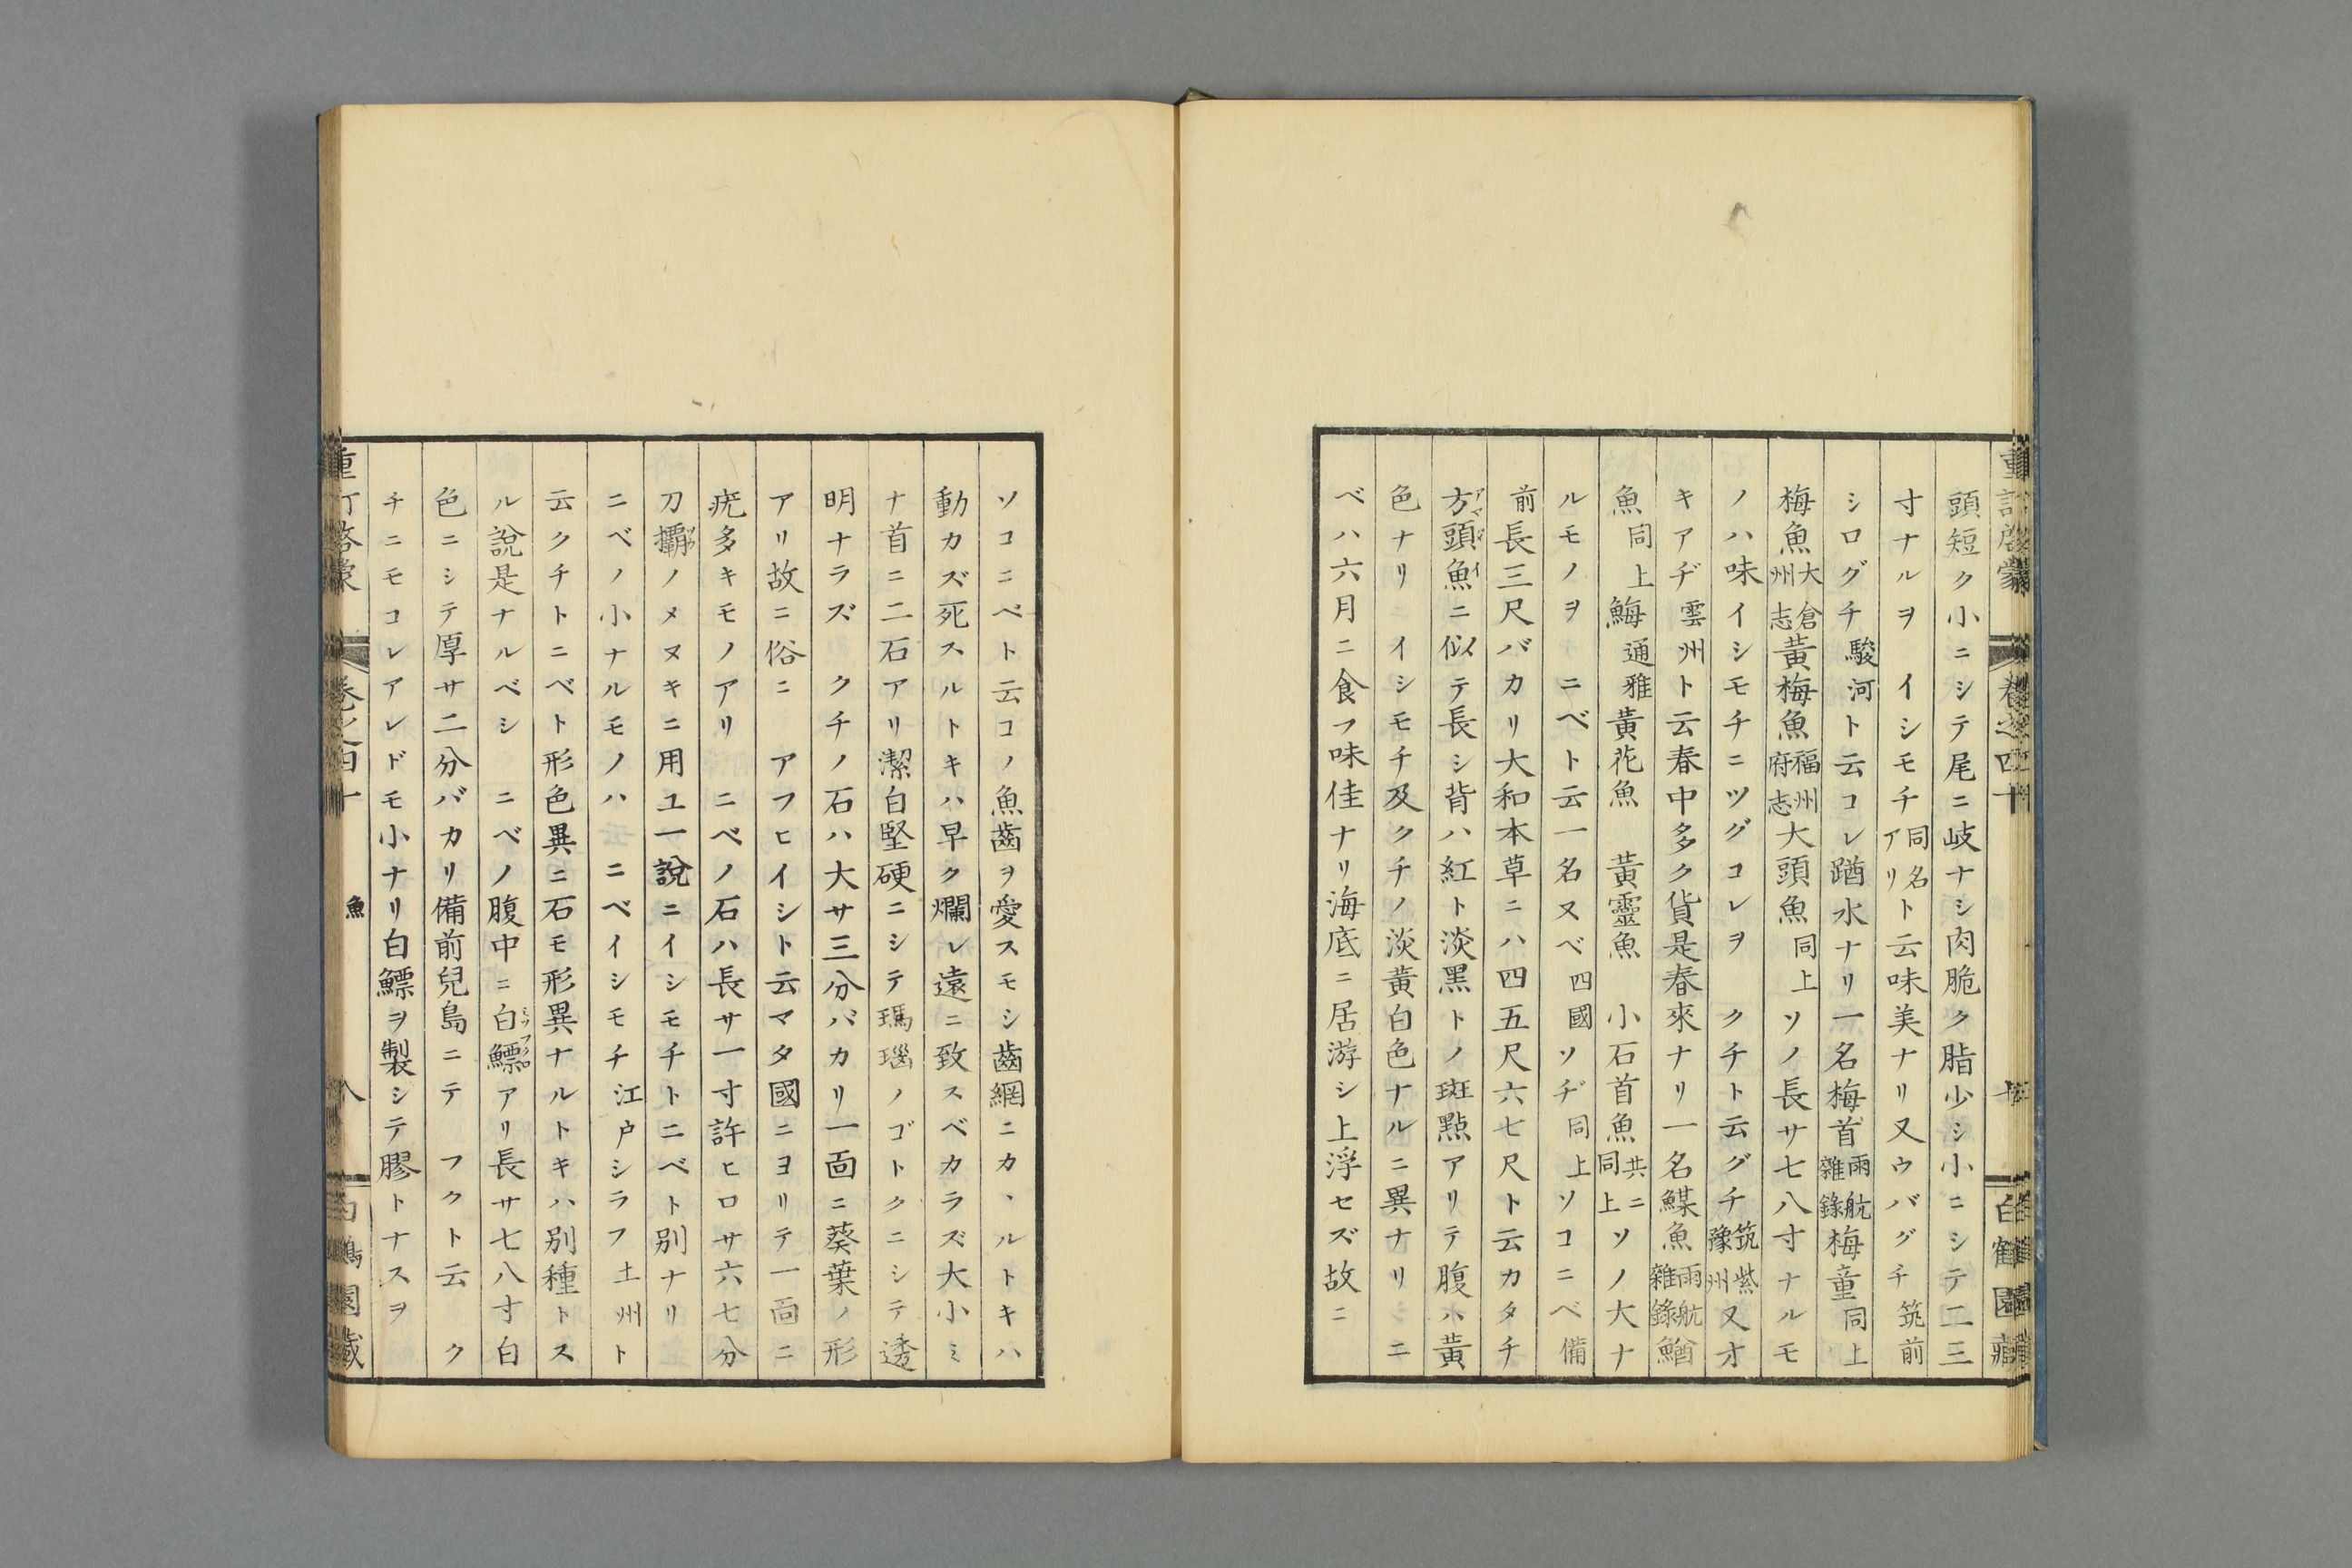 頭短ク小ニシテ尾ニ岐ナシ肉脆ク脂少シ小ニシテ二三
寸ナルヲ イシモチ同名アリト云味美ナリ又ウバグチ筑前
シログチ駿河ト云コレ蹈水ナリ一名梅首雨航雜錄梅童同上
梅魚大倉州志黃梅魚福州府志大頭魚同上ソノ長サ七八寸ナルモ
ノハ味イシモチニツグコレヲ クチト云グチ筑紫豫州又オ
キアヂ雲州ト云春中多ク貨是春來ナリ一名鰈魚雨航雜錄鰌
魚同上鮸通雅黃花魚 黃靈魚 小石首魚共ニ同上ソノ大ナ
ルモノヲ ニベト云一名ヌベ四國ソヂ同上ソコニベ備
前長三尺バカリ大和本草ニハ四五尺六七尺ト云カタチ
方頭魚アマダイニ似テ長シ背ハ紅ト淡黑トノ斑點アリテ腹ハ黃
色ナリ イシモチ及クチノ淡黃白色ナルニ異ナリ ニ
ベハ六月ニ食フ味佳ナリ海底ニ居游シ上浮セズ故ニ
ソコニベト云コノ魚齒ヲ愛スモシ齒網ニカヽルトキハ
動カズ死スルトキハ早ク爛レ遠ニ致スベカラズ大小ミ
ナ首ニ二石アリ潔白堅硬ニシテ瑪瑙ノゴトクニシテ透
明ナラズ クチノ石ハ大サ三分バカリ一面ニ葵葉ノ形
アリ故ニ俗ニ アフヒイシト云マタ國ニヨリテ一面ニ
疣多キモノアリ ニベノ石ハ長サ一寸許ヒロサ六七分
刀欛ノメヌキニ用ユ一說ニイシモチトニベト別ナリ
ニベノ小ナルモノハ ニベイシモチ江戶シラフ土州ト
云クチトニベト形色異ニ石モ形異ナルトキハ別種トス
ル說是ナルベシ ニベノ腹中ニ白鰾アリ長サ七八寸白
色ニシテ厚サ二分バカリ備前兒島ニテ フクト云 ク
チニモコレアレドモ小ナリ白鰾ヲ製シテ膠トナスヲ
卷之四十
魚
八